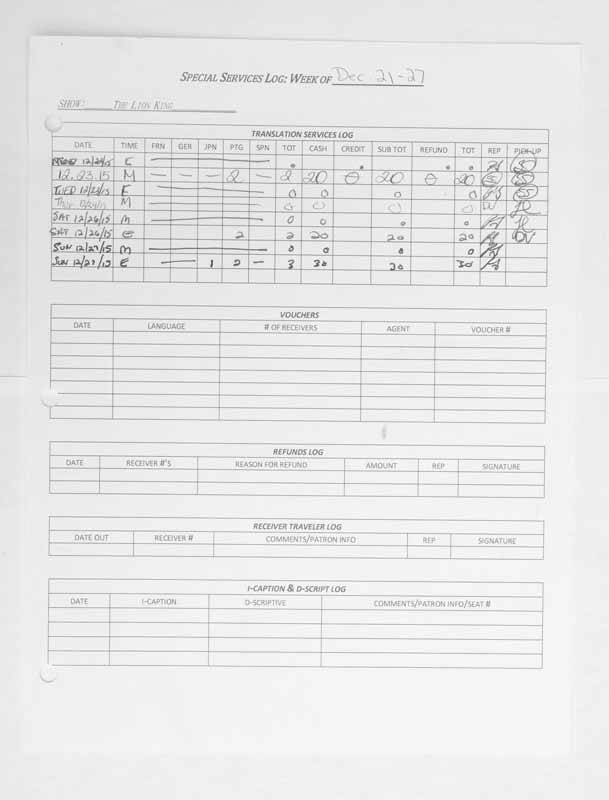 SPECIAL SERVICES LOG: WEEK OF Dec 21-27
SHOW: THE LION KING
TRANSLATION SERVICES LOG
DATE TIME FRN GER JPN PTG SPN TOT CASH CREDIT SUB TOT REFUND TOT REP PICK-UP
E
12.23.15 M — — — 2 — 2 20 0 20 0 20
E 0 0 0 0
M 0 0 0 0
SAT 12/26/15 M 0 0 0 0
SAT 12/26/15 E 2 2 20 20 20
SUN 12/27/15 M 0 0 0 0
SUN 12/27/15 E — 1 2 — 3 30 30 30
VOUCHERS
DATE LANGUAGE # OF RECEIVERS AGENT VOUCHER #
REFUNDS LOG
DATE RECEIVER #'S REASON FOR REFUND AMOUNT REP SIGNATURE
RECEIVER TRAVELER LOG
DATE OUT RECEIVER # COMMENTS/PATRON INFO REP SIGNATURE
I-CAPTION & D-SCRIPT LOG
DATE I-CAPTION D-SCRIPTIVE COMMENTS/PATRON INFO/SEAT #